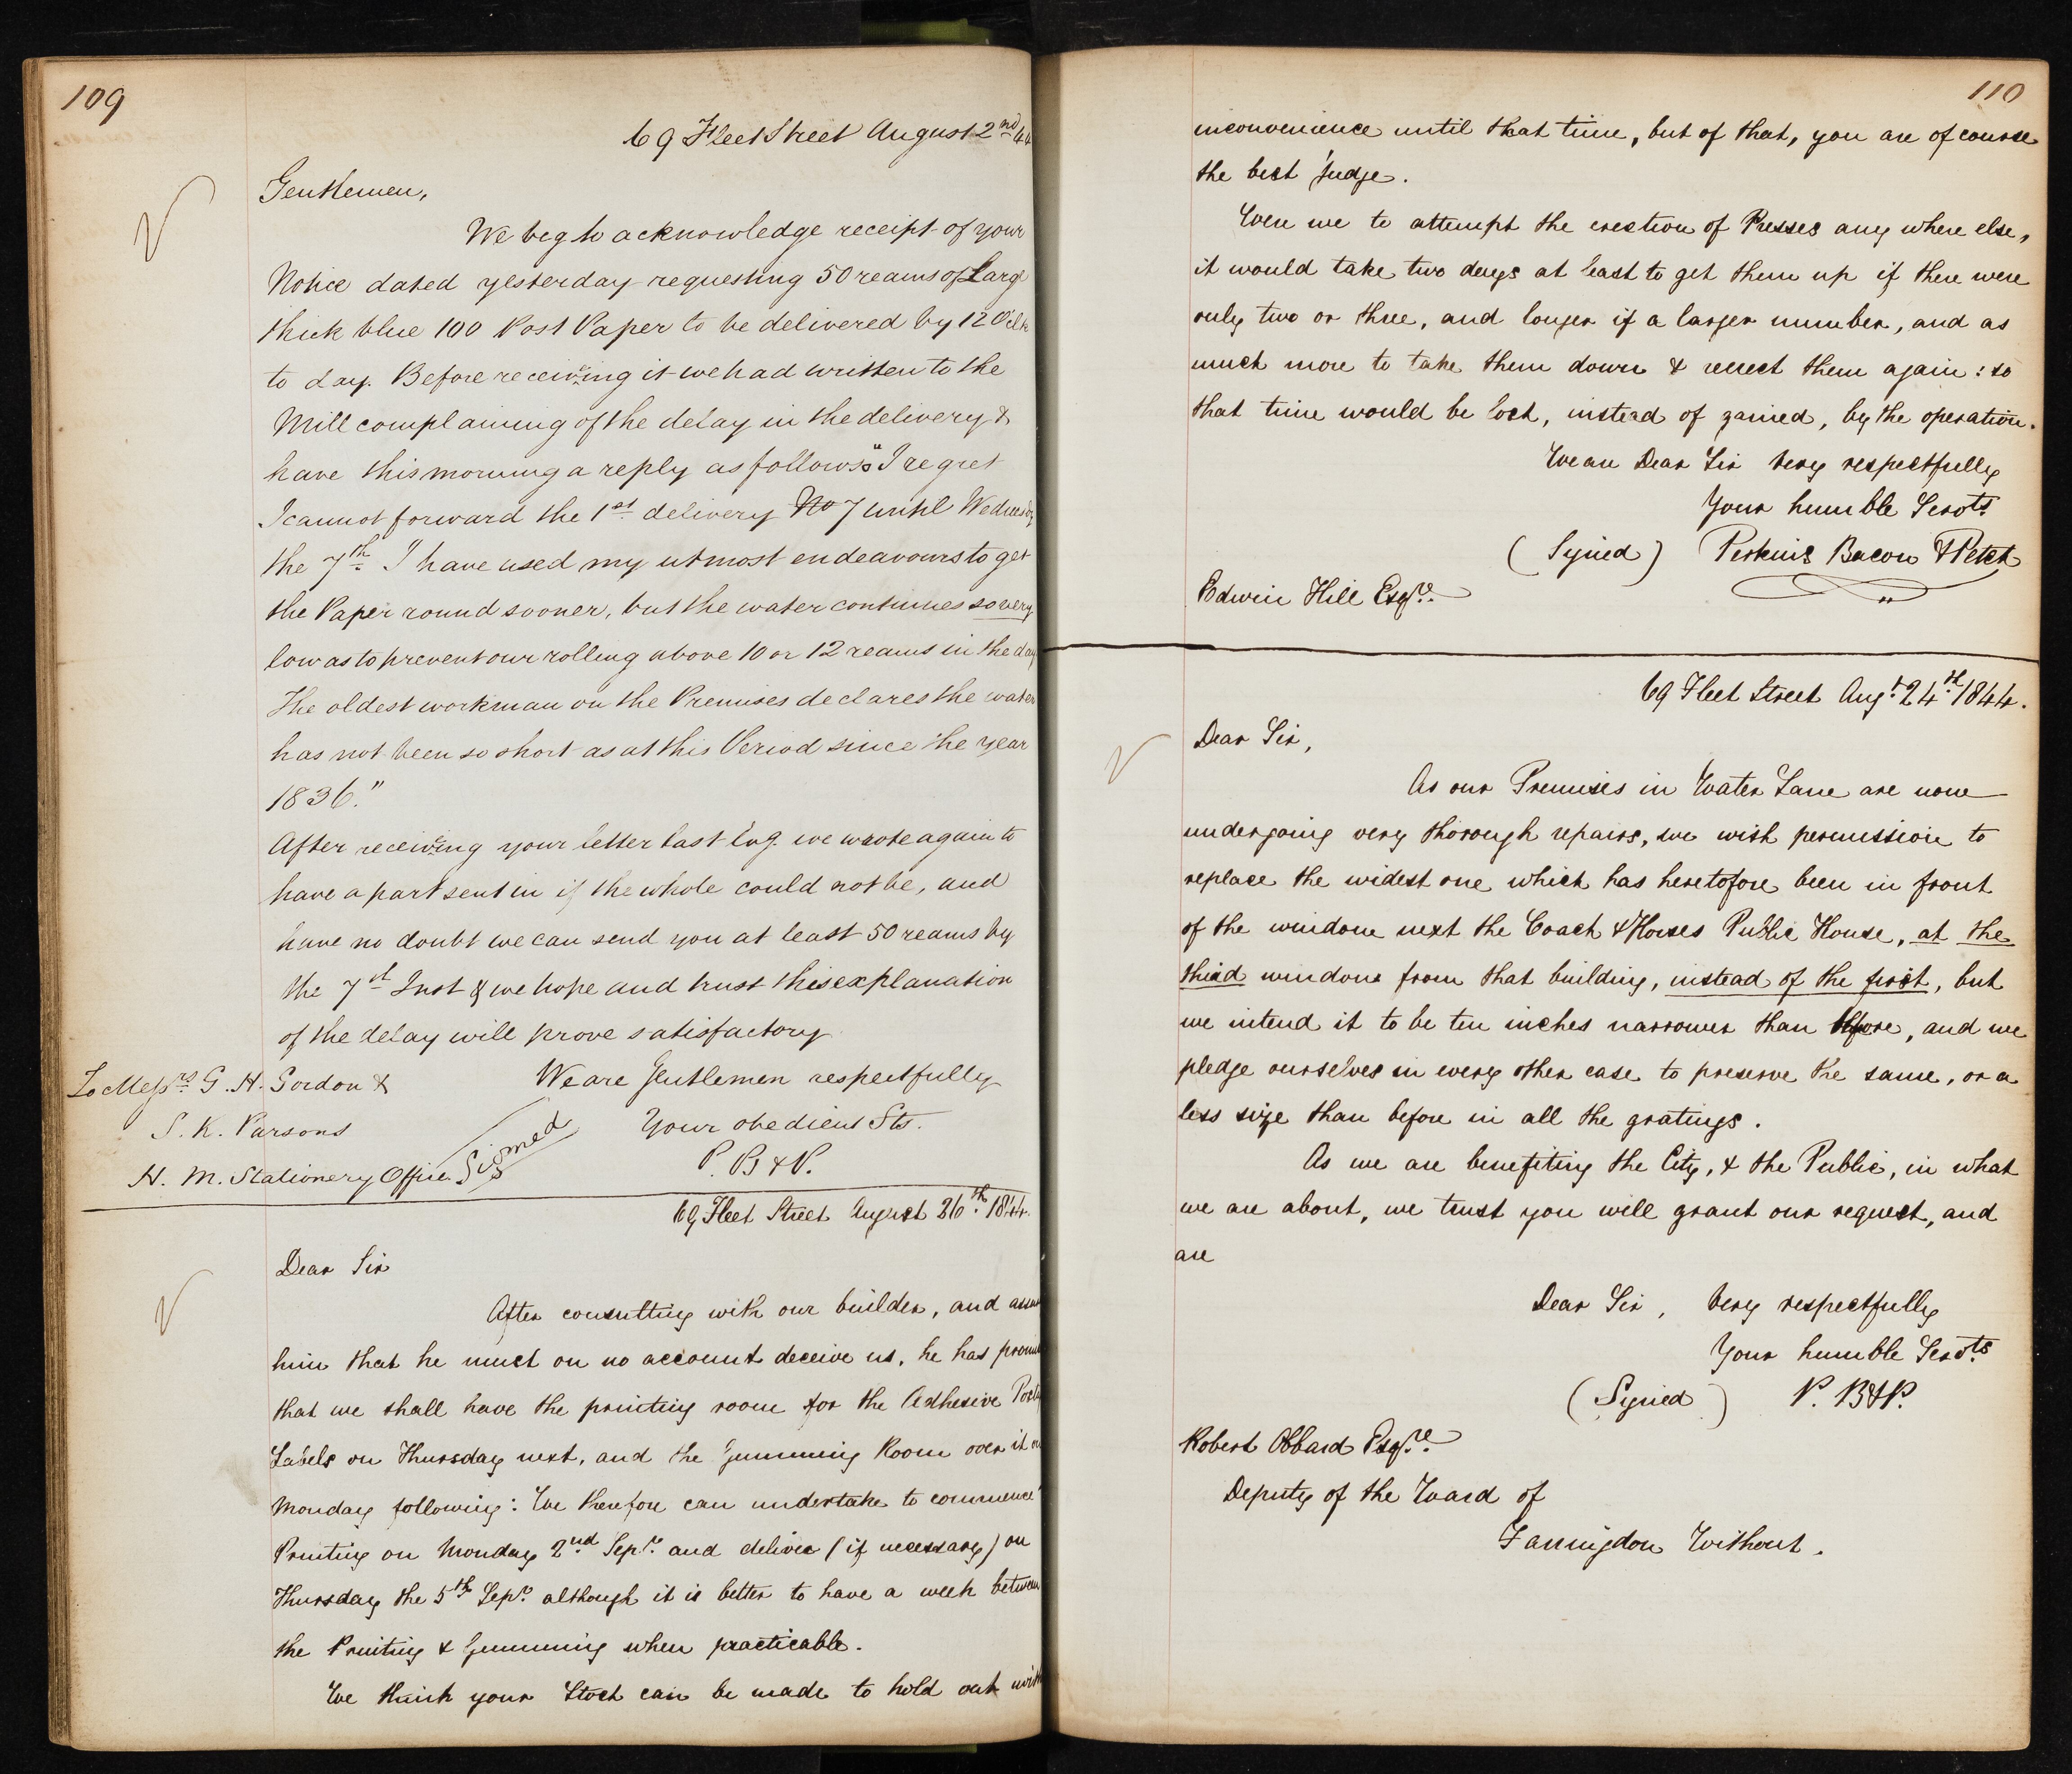 109
69 Fleet Street August 2nd 44
Gentlemen,
We beg to acknowledge receipt of your
Notice dated yesterday requesting 50 reams of Large
thick blue 100 Post Paper to be delivered by 12 OClk
to day. Before receiving it we had written to the
Mill complaining of the delay in the delivery &
have this morning a reply as follows "I regret
I cannot forward the 1st delivery No 7 until Wednesday
the 7th I have used my utmost endeavours to get
the Paper round sooner, but the water continues so very
low as to prevent our rolling above 10 or 12 reams in the day
The oldest workman on the Premises declares the water
has not been so short as at this Period since the year
1836."
After receiving your letter last Evg. we wrote again to
have a part sent in if the whole could not be, and
have no doubt we can send you at least 50 reams by
the 7th Inst & we hope and trust this explanation
of the delay will prove satisfactory
We are Gentlemen respectfully
Your obedient Sts.
Signed P. B & P.
To Messrs G. H. Gordon &
S. K. Parsons
H. M. Stationery Office
69 Fleet Street August 26th 1844.
Dear Sir
After consulting with our builder, and assu
him that he must on no account deceive us, he has promis
that we shall have the printing room for the Adhesive Posta
Labels on Thursday next, and the Gumming Room over it on
Monday following: We therefore can undertake to commence
Printing on Monday 2nd Sepr. and deliver (if necessary) on
Thursday the 5th Sepr. although it is better to have a week between
the Printing & Gumming when practicable.
We think your Stock can be made to hold out with
110
inconvenience until that time, but of that, you are of course
the best judge.
Were we to attempt the erection of Presses any where else,
it would take two days at least to get them up if there were
only two or three, and longer if a larger number, and as
much more to take them down & reerect them again: so
that time would be lost, instead of gained, by the operation.
We are Dear Sir Very respectfully
Your humble Servts.
(Signed) Perkins Bacon & Petch
Edwin Hill Esqre.
69 Fleet Street Augt. 24th. 1844.
Dear Sir,
As our Premises in Water Lane are now
undergoing very thorough repairs, we wish permission to
replace the widest one which has heretofore been in front
of the window next the Coach & Horses Public House, at the
third window from that building, instead of the first, but
we intend it to be ten inches narrower than before, and we
pledge ourselves in every other case to preserve the same, or a
less size than before in all the gratings.
As we are benefiting the City, & the Public, in what
we are about, we trust you will grant our request, and
are
Dear Sir, Very respectfully
Your humble Servts.
(Signed) P. B & P.
Robert Obbard Esqre.
Deputy of the Ward of
Farringdon Without.